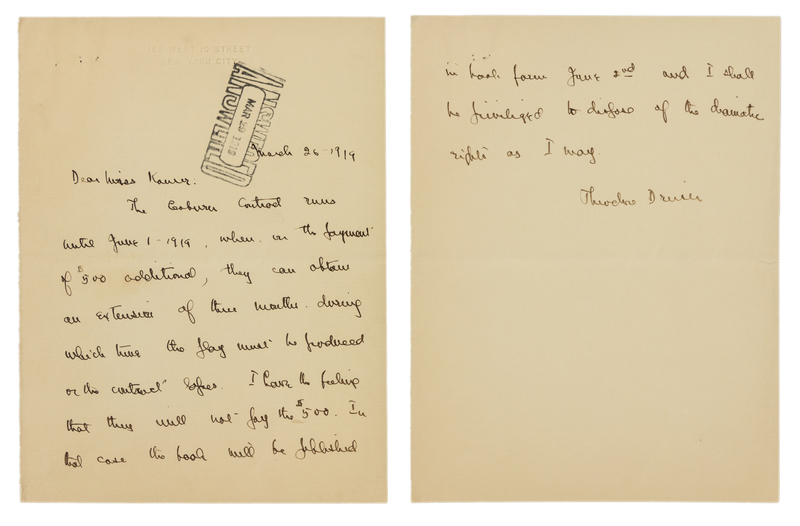 165 WEST 10 STREET
NEW YORK CITY
ANSWERED
MAR 28 1919
ANSWERED
March 26-1919
Dear Miss Kauser:
The Coburn Contract runs
until June 1 - 1919, when, on the payment
of $500 additional, they can obtain
an extension of three months. during
which time the play must be produced
or the contract lapses. I have the feeling
that they will not pay the $500. In
that case the book will be published
in book form June 2nd and I shall
be priviliged to dispose of the dramatic
rights as I may.
Theodore Dreiser